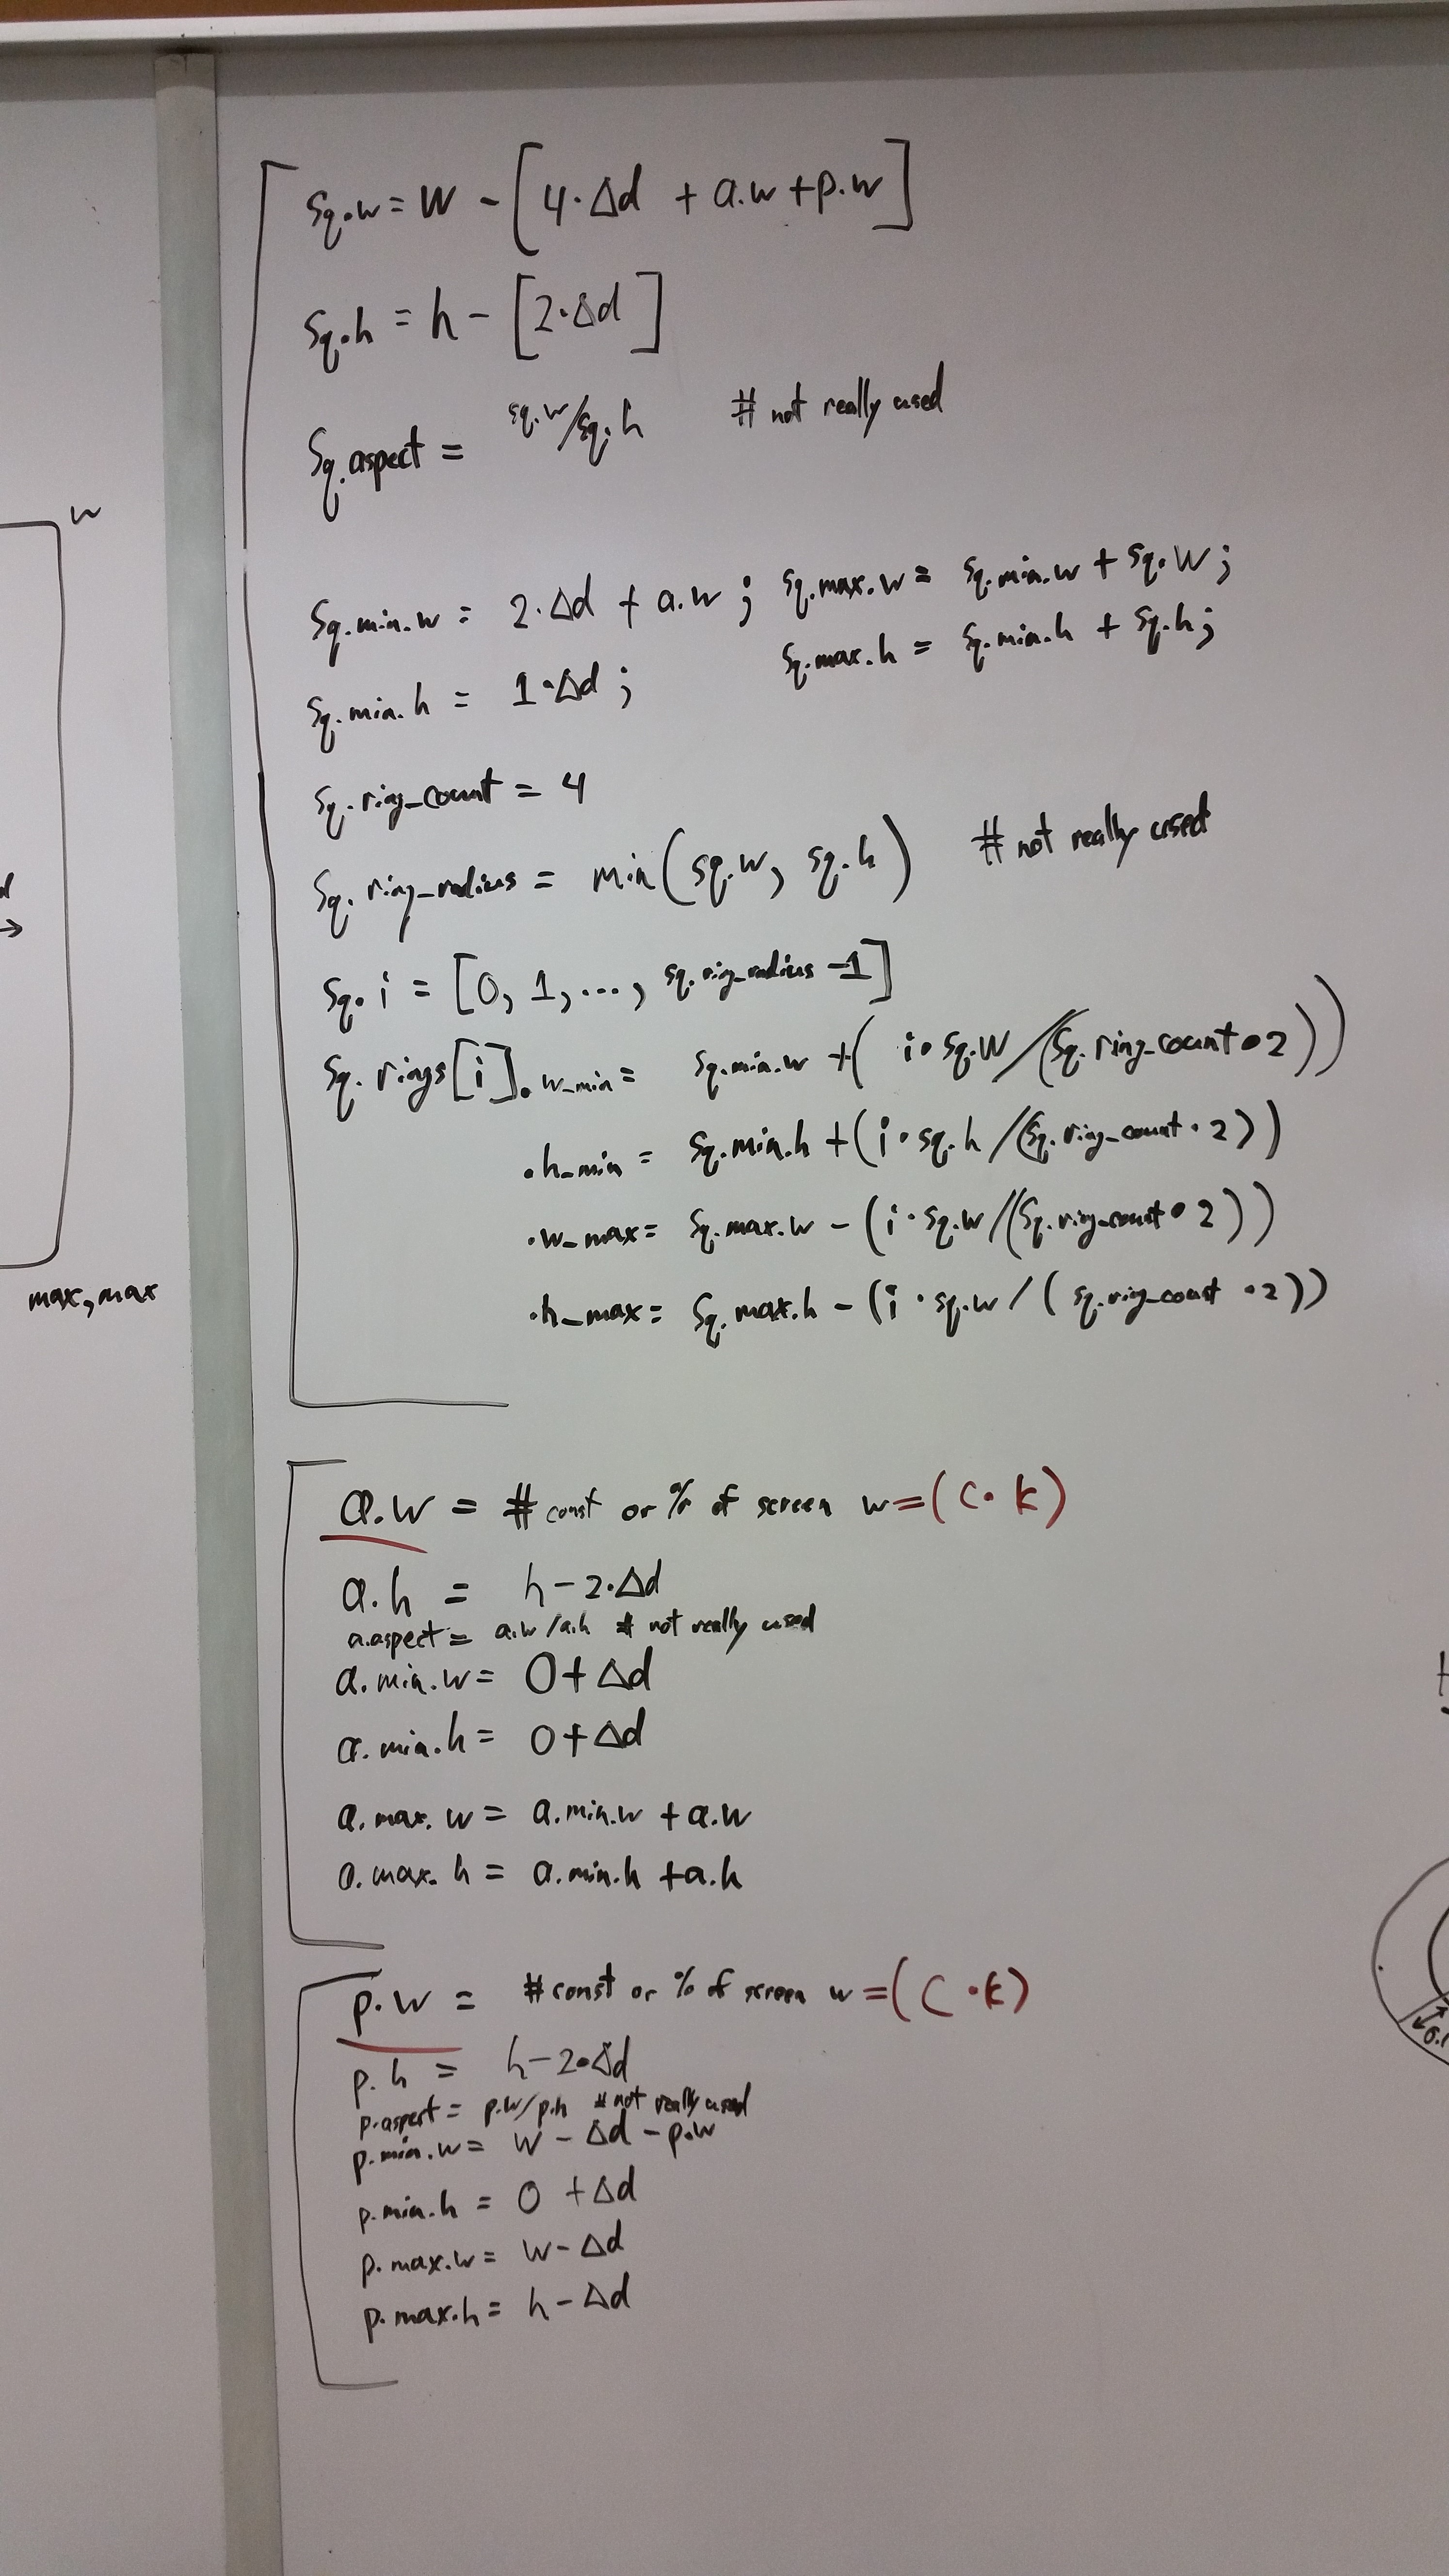 w
max, max
sq.w = W - [4·Δd + a.w + p.w]
sq.h = h - [2·Δd]
sq.aspect = sq.w/sq.h # not really used
sq.min.w = 2·Δd + a.w ; sq.max.w = sq.min.w + sq.W ;
sq.min.h = 1·Δd ; sq.max.h = sq.min.h + sq.h ;
sq.ring_count = 4
sq.ring_radius = min(sq.w, sq.h) # not really used
sq.i = [0, 1, ..., sq.ring_radius -1]
sq.rings[i].w_min = sq.min.w + ( i · sq.W / (sq.ring_count · 2))
.h_min = sq.min.h + (i · sq.h / (sq.ring_count · 2))
.w_max = sq.max.w - (i · sq.w / (sq.ring_count · 2))
.h_max = sq.max.h - (i · sq.w / ( sq.ring_count · 2))
a.w = # const or % of screen w = (C · k)
a.h = h - 2·Δd
a.aspect = a.w/a.h # not really used
a.min.w = 0 + Δd
a.min.h = 0 + Δd
a.max.w = a.min.w + a.w
a.max.h = a.min.h + a.h
p.w = # const or % of screen w = (C · k)
p.h = h - 2·Δd
p.aspect = p.w/p.h # not really used
p.min.w = W - Δd - p.w
p.min.h = 0 + Δd
p.max.w = W - Δd
p.max.h = h - Δd